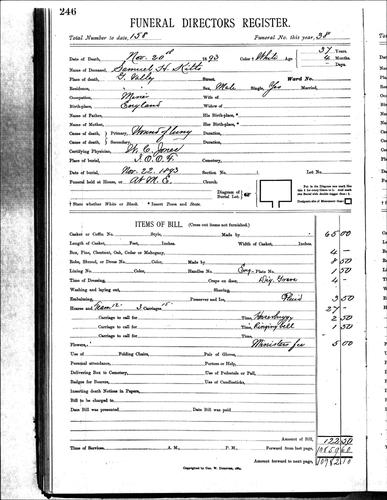 246
FUNERAL DIRECTORS REGISTER.
Total Number to date, 158 Funeral No. this year, 38
Date of Death, Nov. 20th 1893 Color † White Age 37 Years
4 Months
Days.
Name of Deceased, Samuel H.
Place of death, G. Vally Street, Ward No.
Residence, " " Sex, Male Single, Yes Married,
Occupation, Miner Wife of
Birth-place, England Widow of
Name of Father, His Birth-place, *
Name of Mother, Her Birth-place, *
Cause of death, Primary, Wound of
Cause of death, Secondary,
Certifying Physician, W. C. Jones
Place of burial, I.O.O.F. Cemetery,
Date of burial, Nov. 22, 1893 Section No. Lot No.
Funeral held at House, or At M.E. Church.
Diagram of Burial Lot,
† State whether White or Black. * Insert Town and State.
ITEMS OF BILL. (Cross out items not furnished.)
Casket or Coffin No. Style, Made by 65 00
Length of Casket, Feet, Inches. Width of Casket, Inches.
Box, Pine, Chestnut, Oak, Cedar or Mahogany, 4 —
Robe, Shroud, or Dress No. Color, Made by 50
Lining No. Color, Handles No. Eng. Plate No. 1 50
Time of Decease, Crape on door, Dig. Grave 4 —
Washing and laying out, Shaving,
Embalming, Preserver and Ice, Fluid 3 50
Hearse and Team 12. 3 Carriages 15. 27 —
Carriage to call for Time, 2 50
Carriage to call for Time, Ringing Bell 1 50
Carriage to call for Time,
Flowers, Ministers fee 5 00
Use of Folding Chairs, Pair of Gloves,
Personal attendance, Porters or Help,
Delivering Box to Cemetery, Use of Pedestals or Pall,
Badges for Bearers, Use of Candlesticks,
Inserting death Notices in Papers,
Bill to be charged to
Date Bill was presented Date Bill was paid
Amount of Bill, 122 50
Time of Services, A. M., P. M., Forward from last page, 10859 60
Amount forward to next page, 10982 10